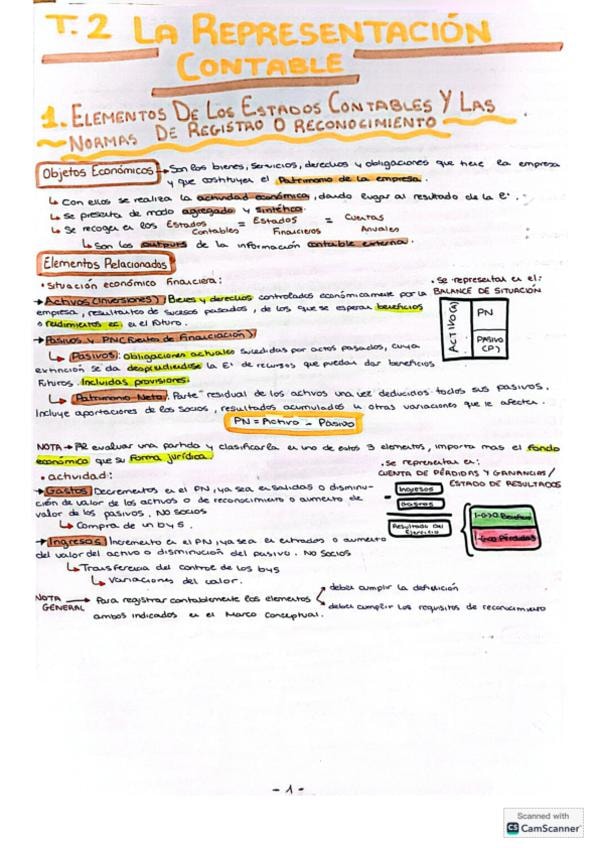 T.2 LA REPRESENTACIÓN
CONTABLE
1. ELEMENTOS DE LOS ESTADOS CONTABLES Y LAS
NORMAS DE REGISTRO O RECONOCIMIENTO
Objetos Económicos → Son los bienes, servicios, derechos y obligaciones que tiene la empresa
y que costituyen el Patrimonio de la empresa.
↳ Con ellos se realiza la actividad económica, dando lugar al resultado de la eª.
↳ Se presenta de modo agregado y sintético.
↳ Se recogen en los Estados Contables = Estados Financieros = Cuentas Anuales
↳ Son los outputs de la información contable externa.
Elementos Relacionados
• Situación económico financiera:
→ Activos (Inversiones): Bienes y derechos controlados económicamente por la
empresa, resultantes de sucesos pasados, de los que se esperan beneficios
o rendimientos ec. en el futuro.
→ Pasivos y PN (Fuentes de Financiación)
↳ Pasivos: obligaciones actuales surgidas por actos pasados, cuya
extinción se da desprendiendose la Eª de recursos que puedan dar beneficios
futuros. Incluidas provisiones.
↳ Patrimonio Neto: "Parte" residual de los activos una vez deducidos todos sus pasivos.
Incluye aportaciones de los socios, resultados acumulados u otras variaciones que le afecten.
PN = Activo - Pasivo
• Se representa en el:
BALANCE DE SITUACIÓN
ACTIVO (A)
PN
PASIVO
(P)
NOTA → PR evaluar una partida y clasificarla en uno de estos 3 elementos, importa mas el fondo
económico que su forma jurídica.
• actividad:
→ Gastos: Decrementos en el PN, ya sea en salidas o disminu-
ción de valor de los activos o de reconocimiento o aumento de
valor de los pasivos. NO SOCIOS
↳ Compra de un bys.
→ Ingresos: Incremento en el PN, ya sea en entradas o aumento
del valor del activo o disminución del pasivo. NO SOCIOS
↳ Transferencia del control de los bys
↳ Variaciones del valor.
• Se representan en:
CUENTA DE PÉRDIDAS Y GANANCIAS /
ESTADO DE RESULTADOS
Ingresos
Gastos
Resultado del
Ejercicio
I-G>0 Beneficio
I-G<0 Pérdidas
NOTA GENERAL → Para registrar contablemente los elementos
deben cumplir la definición
deben cumplir los requisitos de reconocimiento
ambos indicados en el Marco Conceptual.
- 1 -
Scanned with
CS CamScanner